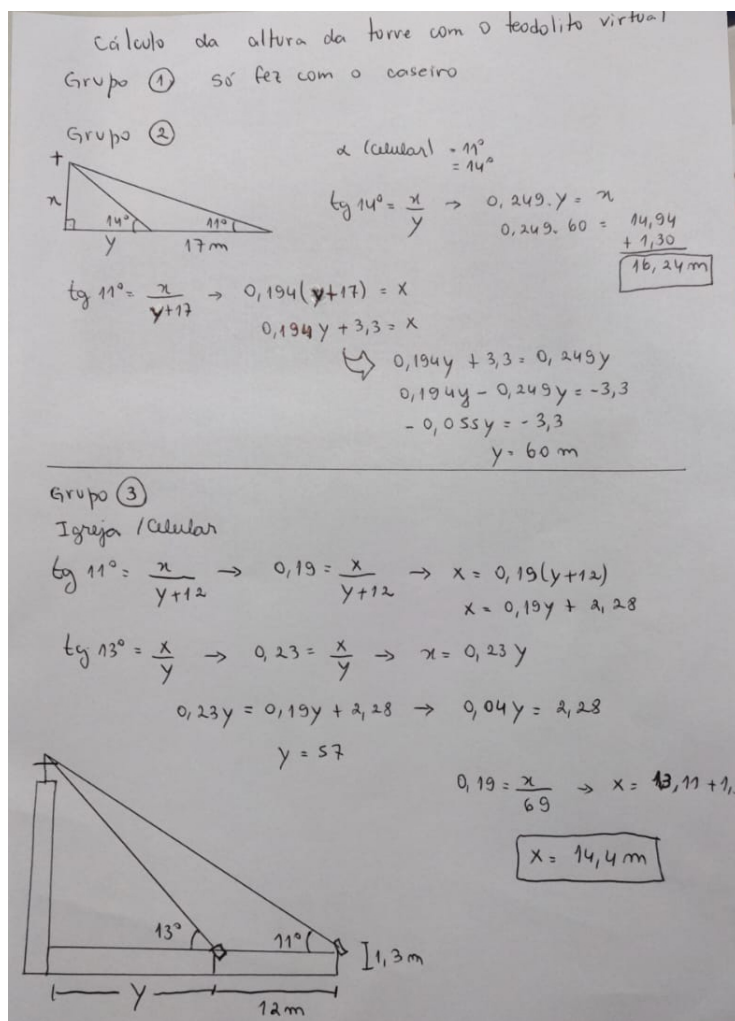 Cálculo da altura da torre com o teodolito virtual
Grupo ① só fez com o caseiro
Grupo ②
α (celular) = 11°
= 14°
x
14°
11°
y
17m
tg 14° = x/y → 0,249.y = x
0,249.60 = 14,94
+ 1,30
16,24m
tg 11° = x/y+17 → 0,194(y+17) = x
0,194y + 3,3 = x
0,194y + 3,3 = 0,249y
0,194y - 0,249y = -3,3
- 0,055y = - 3,3
y = 60 m
Grupo ③
Igreja / Celular
tg 11° = x/y+12 → 0,19 = x/y+12 → x = 0,19(y+12)
x = 0,19y + 2,28
tg 13° = x/y → 0,23 = x/y → x = 0,23y
0,23y = 0,19y + 2,28 → 0,04y = 2,28
y = 57
0,19 = x/69 → x = 13,11 + 1,
x = 14,4m
13°
11°
1,3m
y
12m